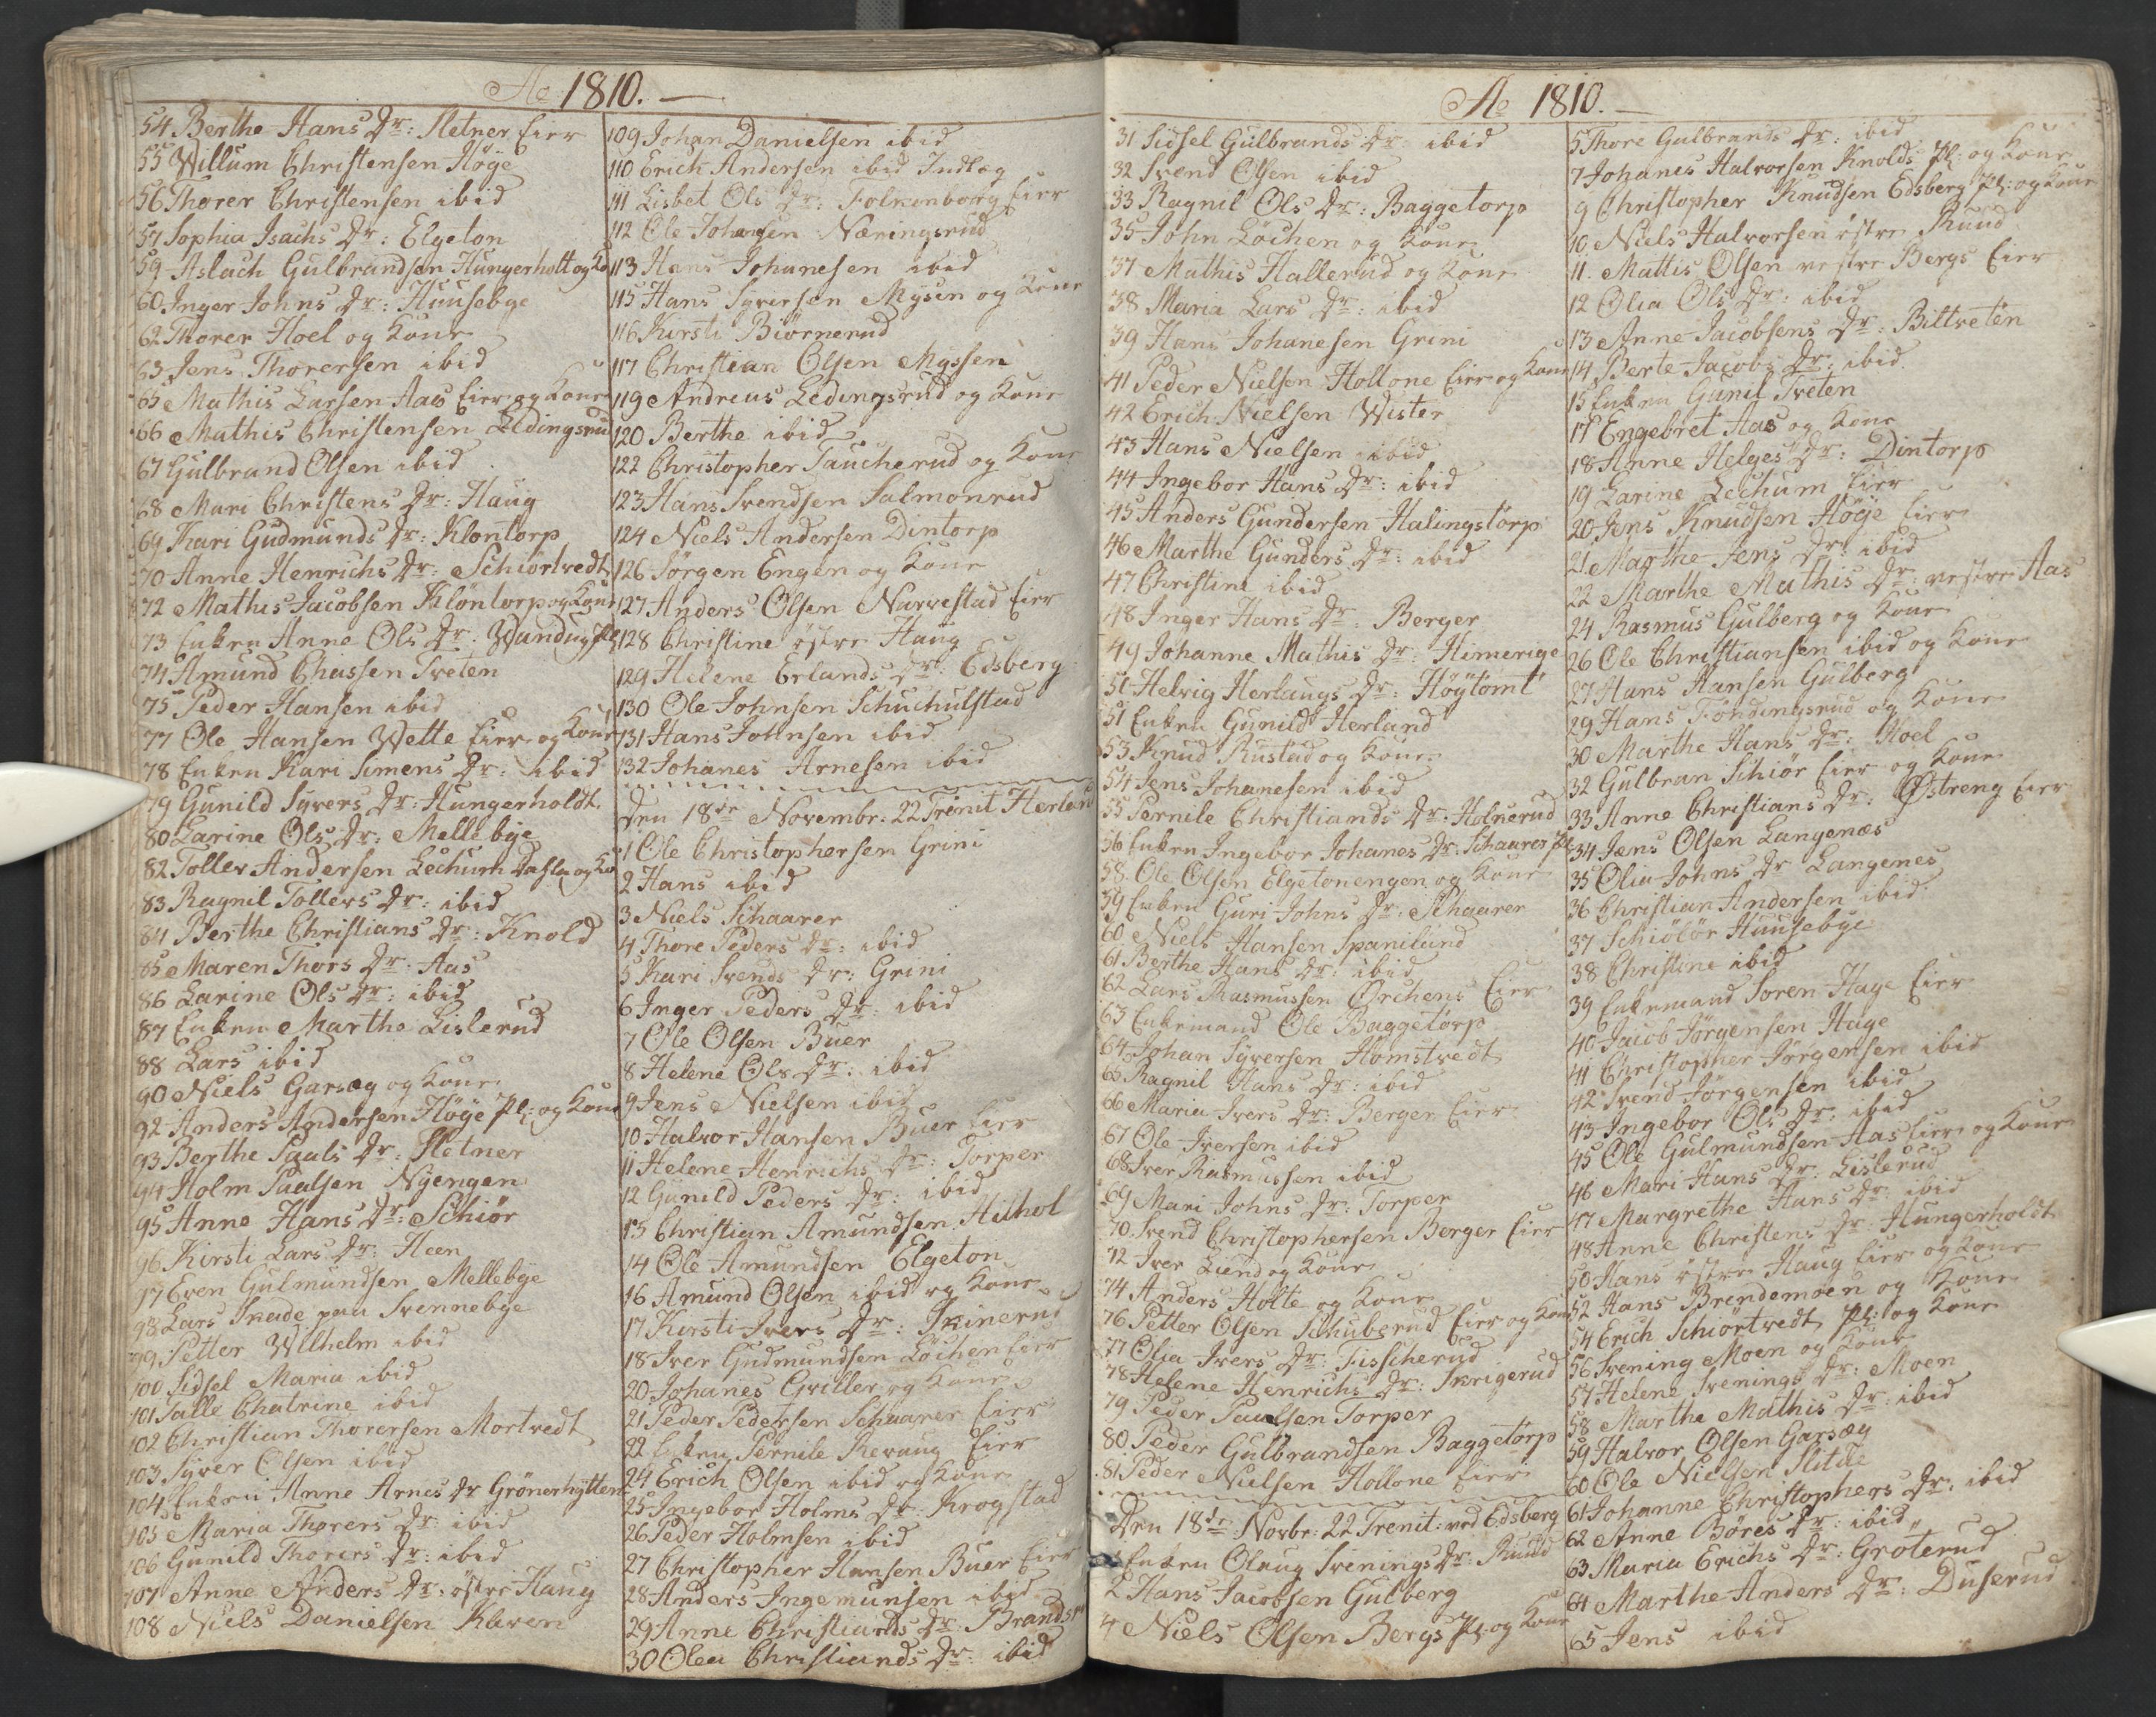 Ao 1810.
54 Berthe Hans Dr: Sletner Eier
55 Willum Christensen Höge
56 Thorer Christensen ibid
57 Sophia Isachs Dr: Elgeton
59 Aslach Gulbrandsen Hungerholt og Ko
60 Inger Johns Dr: Huusebye
62 Thorer Hoel og Kone
63 Jens Thorersen ibid
65 Mathis Larsen Aas Eier og Kone
66 Mathis Christensen Ledingsrud
67 Gulbrand Olsen ibid
68 Mari Christens Dr: Haug
69 Kari Gudmunds Dr: Klontorp
70 Anne Henrichs Dr: Schiörtvedt
72 Mathis Jacobsen Klöntorp og Kone
73 Enken Anne Ols Dr:
74 Amund Chassen Tveten
75 Peder Hansen ibid
77 Ole Hansen Wette Eier og Kone
78 Enken Kari Simens Dr: ibid
79 Gunild Syvers Dr: Hungerholdt
80 Larine Ols Dr: Mellebye
82 Toller Andersen Lechum og Ko
83 Ragnil Tollers Dr: ibid
84 Berthe Christians Dr: Knold
85 Maren Thors Dr: Aas
86 Larine Ols Dr: ibid
87 Enken Marthe Lislerud
88 Lars ibid
90 Niels Garsæg og Kone
92 Anders Andersen Höge Pl: og Kone
93 Berthe Paals Dr: Sletner
94 Holm Paalsen Nyengen
95 Anne Hans Dr: Schiör
96 Kirsti Lars Dr: Heen
97 Even Gulmundsen Mellebye
98 Lars Skade paa Svennebye
99 Petter Wilhelm ibid
100 Sidsel Maria ibid
101 Talle Chatrine ibid
102 Christian Thorersen Mortvedt
103 Syver Olsen ibid
104 Enken Anne Arnes Dr Grönerhytten
105 Maria Thorers Dr: ibid
106 Gunild Thorers Dr: ibid
107 Anne Anders Dr: östre Haug
108 Niels Danielsen Klaven
109 Johan Danielsen ibid
110 Erich Andersen ibid Indlæg
111 Lisbet Ols Dr: Folkenborg Eier
112 Ole Johansen Næringsrud
113 Hans Johanesen ibid
115 Hans Syversen Mysen og Kone
116 Kirsti Biörnerud
117 Christian Olsen Myssen
119 Andreas Ledingsrud og Kone
120 Berthe ibid
122 Christopher Taucherud og Kone
123 Hans Svendsen Salmonrud
124 Niels Andersen Dintorp
126 Jörgen Engen og Kone
127 Anders Olsen Narvestad Eier
128 Christine östre Haug
129 Helene Erlands Dr: Edsberg
130 Ole Johnsen Schuchulstad
131 Hans Johnsen ibid
132 Johanes Arnesen ibid
Den 18de Novembr: 22 Trenit Herland
1 Ole Christophersen Grini
2 Hans ibid
3 Niels Schaarer
4 Thore Peders Dr: ibid
5 Kari Svends Dr: Grini
6 Inger Peders Dr: ibid
7 Ole Olsen Buer
8 Helene Ols Dr: ibid
9 Jens Nielsen ibid
10 Halvor Hansen Buer Eier
11 Helene Henrichs Dr: Torper
12 Gunild Peders Dr: ibid
13 Christian Amundsen Hithol
14 Ole Amundsen Elgeton
16 Amund Olsen ibid og Kone
17 Kirsti Ivers Dr: Skinerud
18 Iver Gudmundsen Löchen Eier
20 Johanes Griller og Kone
21 Peder Pedersen Schaarer Eier
22 Enken Pernile Revaug Eier
24 Erich Olsen ibid og Kone
25 Ingebor Holms Dr: Krogstad
26 Peder Holmsen ibid
27 Christopher Hansen Buer Eier
28 Anders Ingemunsen ibid
29 Anne Christiands Dr:
30 Olea Christiands Dr: ibid
Ao 1810.
31 Sidsel Gulbrands Dr: ibid
32 Svend Olsen ibid
33 Ragnil Ols Dr: Baggetorp
35 John Löchen og Kone
37 Mathis Hallerud og Kone
38 Maria Lars Dr: ibid
39 Hans Johanesen Grini
41 Peder Nielsen Hollone Eier og Kone
42 Erich Nielsen Wister
43 Hans Nielsen ibid
44 Ingebor Hans Dr: ibid
45 Anders Gundersen Halingstorp
46 Marthe Gunders Dr: ibid
47 Christine ibid
48 Inger Hans Dr: Berger
49 Johanne Mathis Dr: Himerige
51 Helvig Herlaugs Dr: Höytomt
51 Enken Gunild Herland
53 Knud Rustad og Kone
54 Jens Johanesen ibid
55 Pernile Christiands Dr: Holnerud
56 Enken Ingebor Johanes Dr: Schaarer Pl:
58 Ole Olsen Elgetonengen og Kone
59 Enken Guri Johns Dr: Schaarer
60 Niels Hansen Spanilund
61 Berthe Hans Dr: ibid
62 Lars Rasmussen Örchens Eier
63 Enkemand Ole Baggetorp
64 Johan Syversen Homstvedt
65 Ragnil Hans Dr: ibid
66 Maria Ivers Dr: Berger Eier
67 Ole Iversen ibid
68 Iver Rasmussen ibid
69 Mari Johns Dr: Torper
70 Svend Christophersen Berger Eier
72 Iver Lund og Kone
74 Anders Holte og Kone
76 Petter Olsen Schuberud Eier og Kone
77 Olia Ivers Dr: Fisscherud
78 Helene Henrichs Dr: Skrigerud
79 Peder Paulsen Torper
80 Peder Gulbrandsen Baggetorp
81 Peder Nielsen Hollone Eier
Den 18de Novbr: 22 Trenit: ved Edsberg
1 Enken Olaug Svenings Dr: Ruud
2 Hans Jacobsen Gulberg
4 Niels Olsen Bergs Pl: og Kone
5 Thore Gulbrands Dr: ibid
7 Johanes Halvorsen Knolds Pl: og Kone
9 Christopher Knudsen Edsberg Pl: og Kone
10 Niels Halvorsen östre Ruud
11. Mattis Olsen vestre Bergs Eier
12 Olia Ols Dr: ibid
13 Anne Jacobsens Dr: Biltveten
14 Berte Jacobs Dr: ibid
15 Enken Gunil Tveten
17 Engebret Aas og Kone
18 Anne Helges Dr: Dintorp
19 Larine Lechum Eier
20 Jens Knudsen Höye Eier
21 Marthe Jens Dr: ibid
22 Marthe Mathis Dr: vestre Aas
24 Rasmus Gulberg og Kone
26 Ole Christiansen ibid og Kone
27 Hans Hansen Gulberg
29 Hans Föndingsrud og Kone
30 Marthe Hans Dr: Hoel
32 Gulbran Schiör Eier og Kone
33 Anne Christians Dr: Östreng Eier
34 Jens Olsen Langenæs
35 Olia Johns Dr Langenes
36 Christian Andersen ibid
37 Schiölör Huusebye
38 Christine ibid
39 Enkemand Soren Hage Eier
40 Jacob Jörgensen Hage
41 Christopher Jörgensen ibid
42 Svend Jörgensen ibid
43 Ingebor Ols Dr: ibid
45 Ole Gulmundsen Aas Eier og Kone
46 Mari Hans Dr: Lislerud
47 Margrethe Hans Dr: ibid
48 Anne Christens Dr: Hungerholdt
50 Hans östre Haug Eier og Kone
52 Hans Brendemoen og Kone
54 Erich Schiörtvedt Pl: og Kone
56 Svening Moen og Kone
57 Helene Svenings Dr: Moen
58 Marthe Mathis Dr: ibid
59 Halvor Olsen Garsæg
60 Ole Nielsen Slitue
61 Johanne Christophers Dr: ibid
62 Anne Börres Dr: ibid
63 Maria Erichs Dr: Groterud
64 Marthe Anders Dr: Duserud
65 Jens ibid